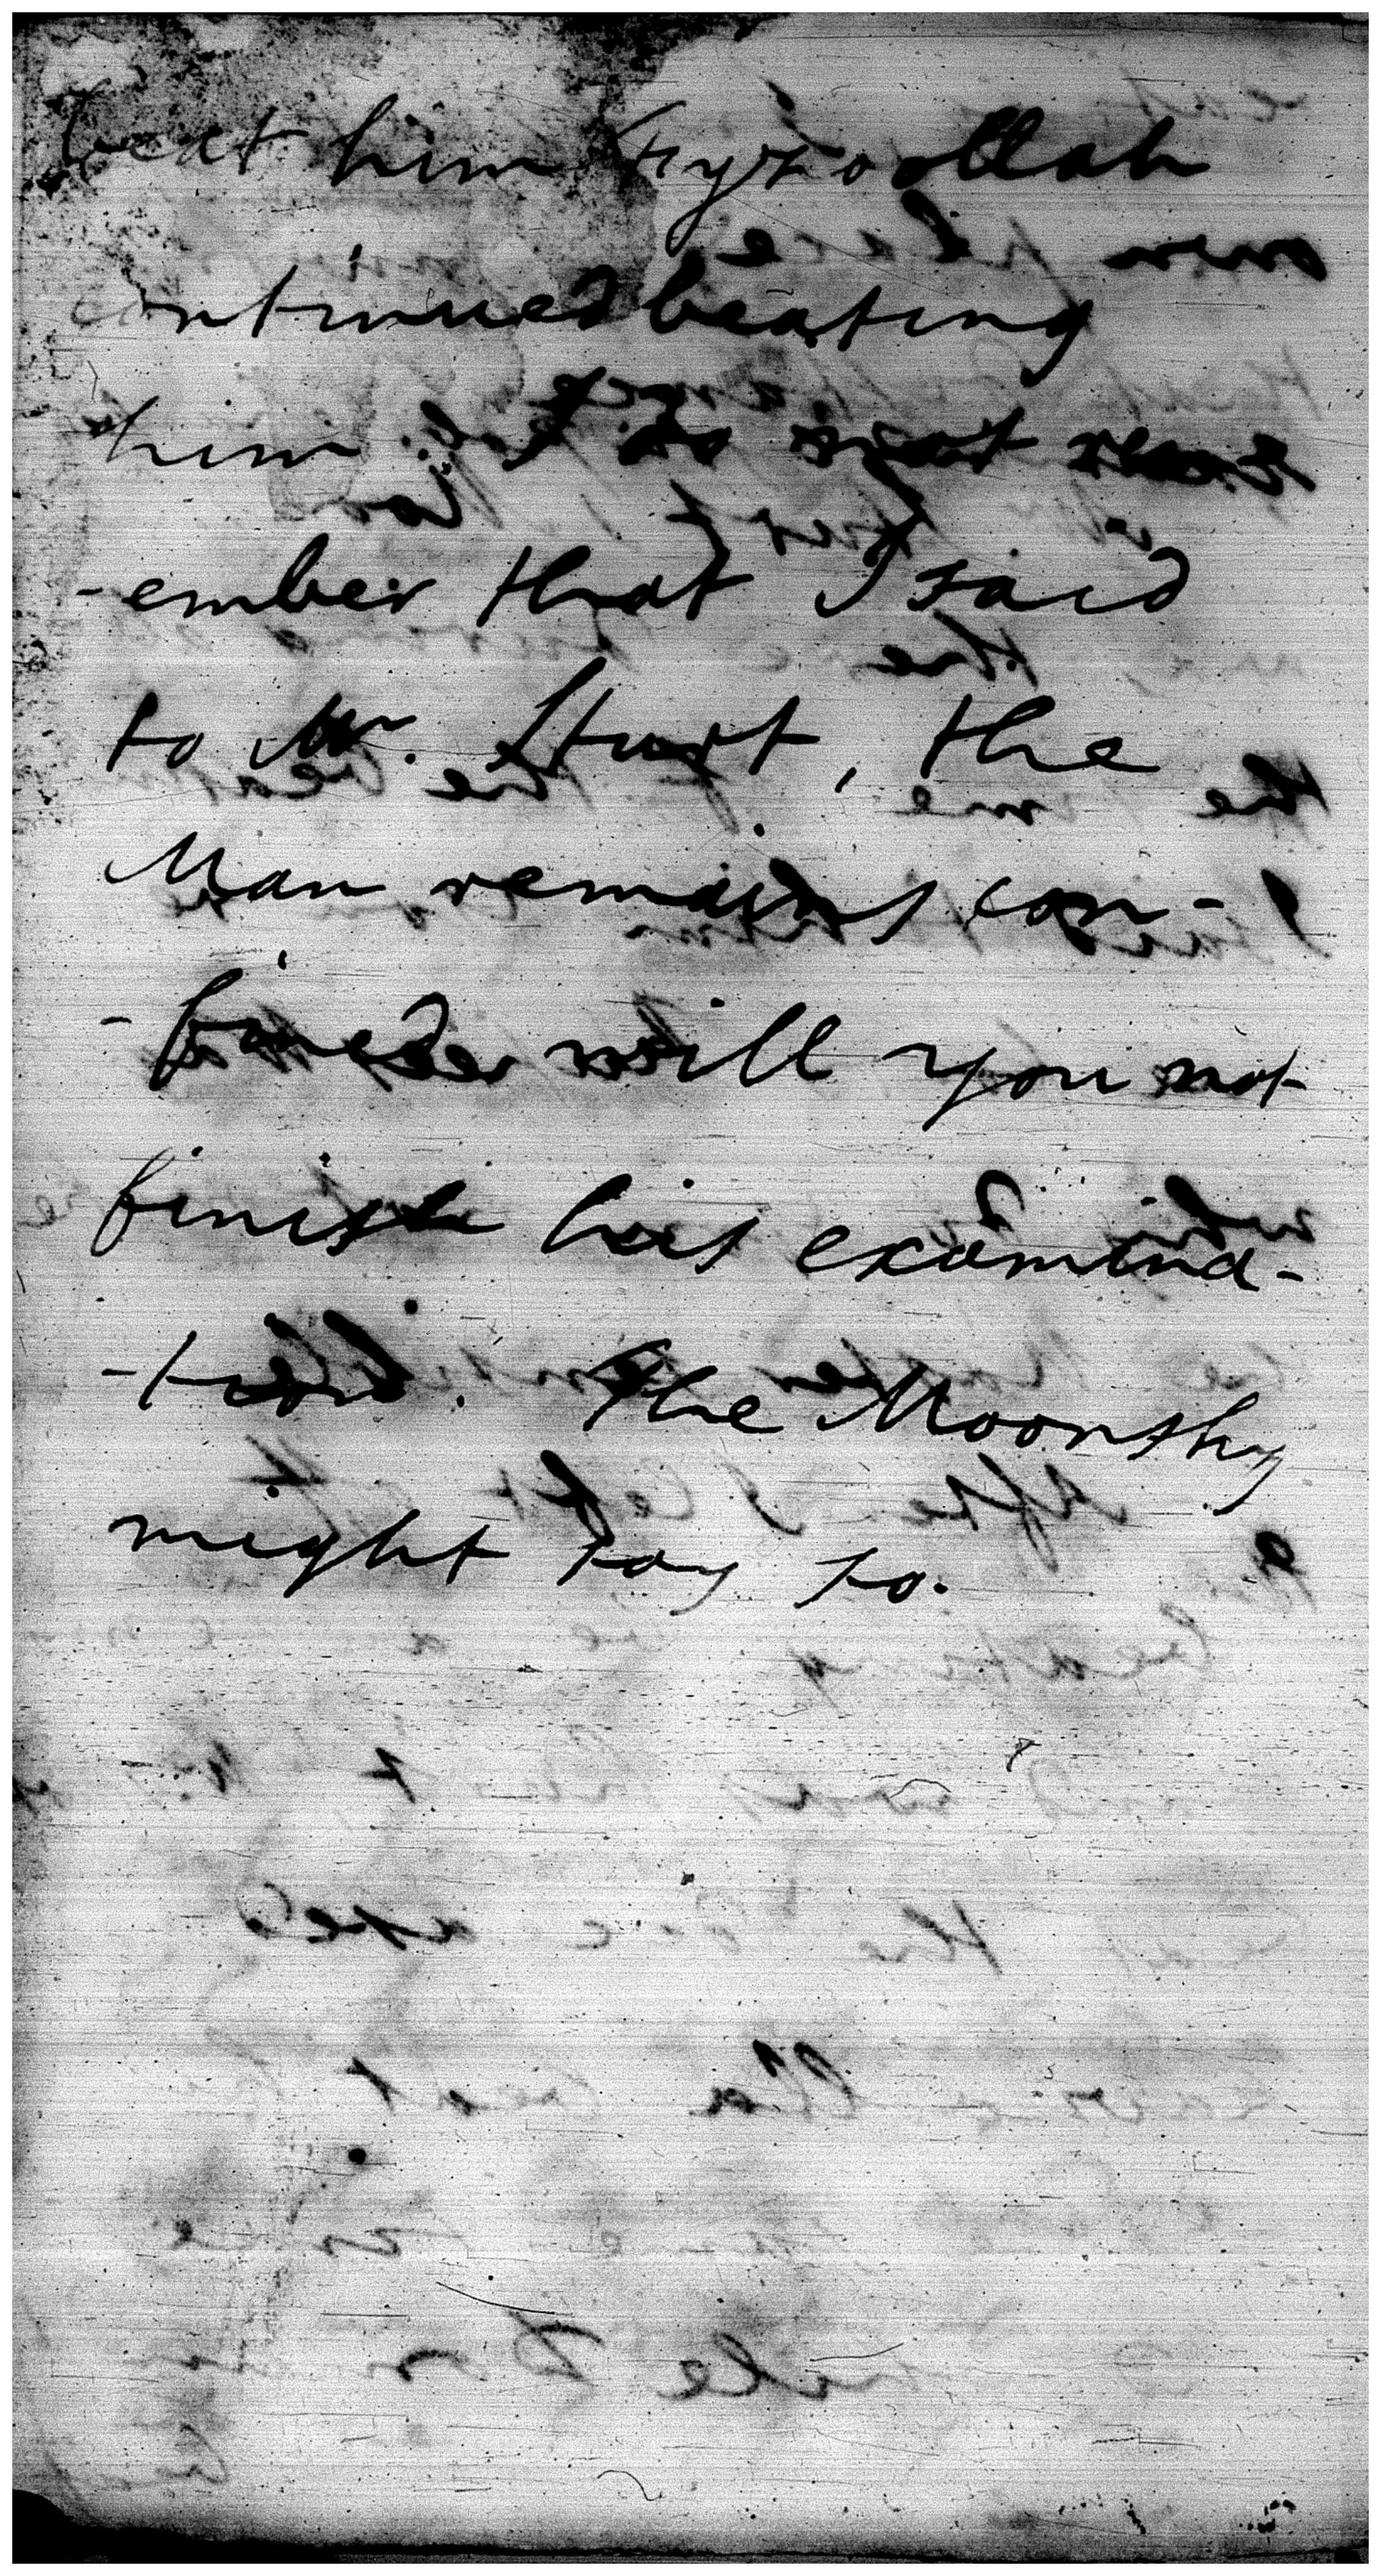 beat him Fyzoollah
continued beating
him. I do not rem
-ember that I said
to Mr. Sturt, the
Man remains con-
-fined will you not
finish his examina-
-tion. The Moonshy
might say so.